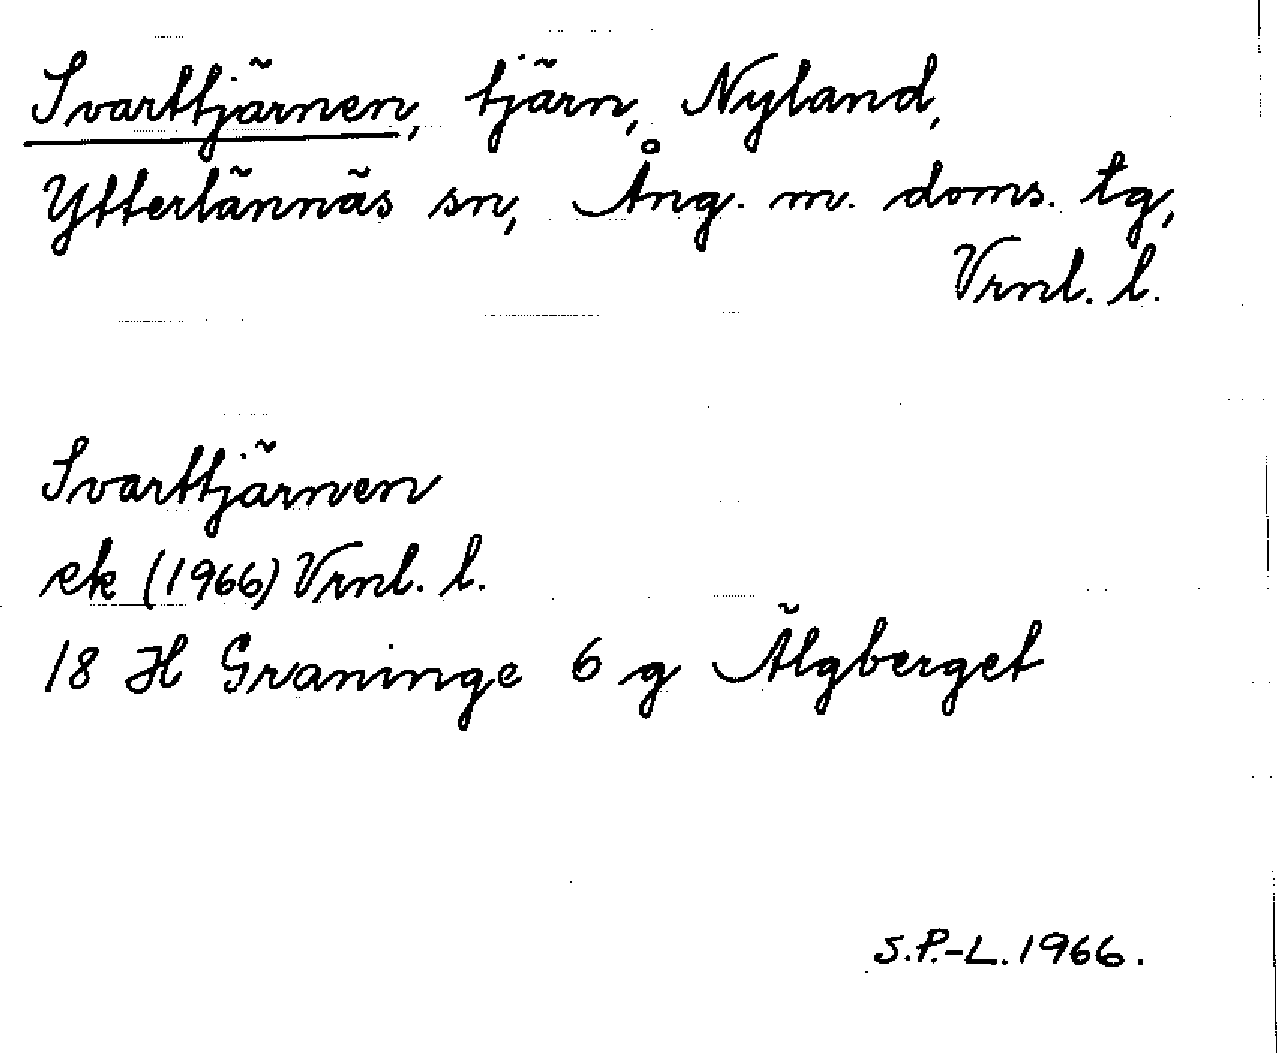 Svarttjärnen, tjärn, Nyland,
Ytterlännäs sn, Ång. m. doms. tg,
Vrnl. l.
Svarttjärnen
ek (1966) Vrnl. l.
18 H Graninge 6 g Älgberget
S.P.-L. 1966.